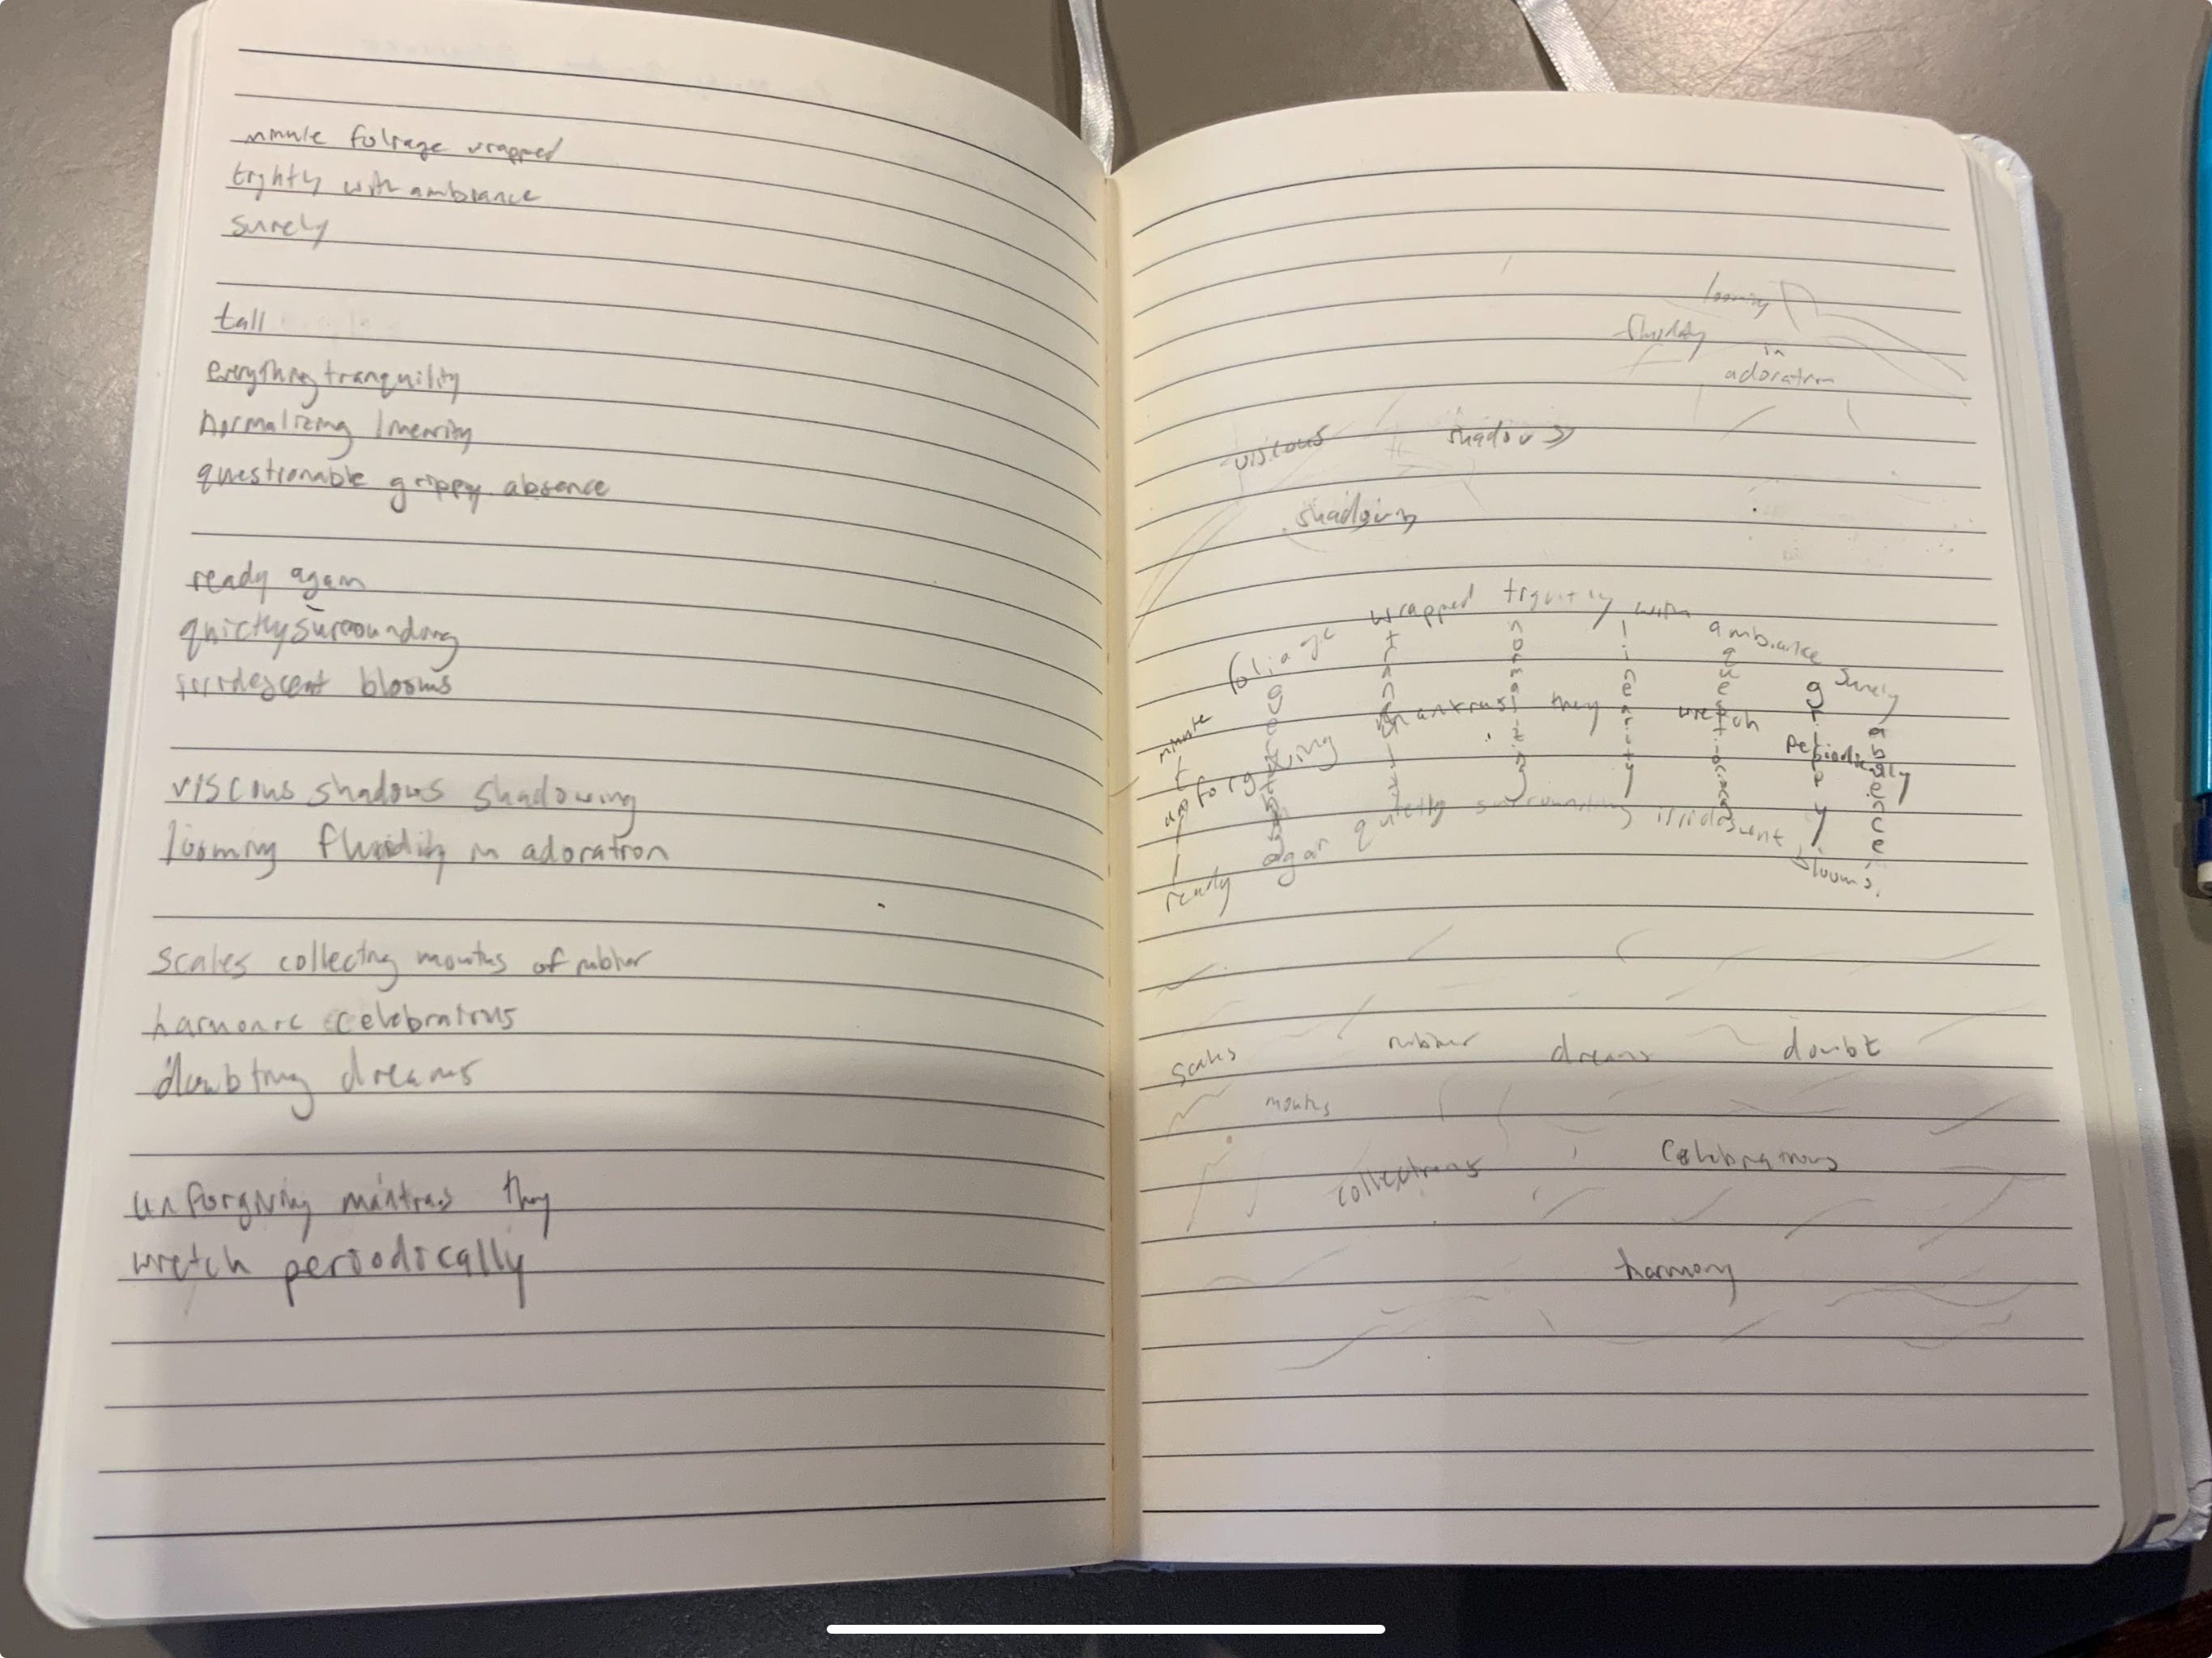 minute foliage wrapped
tightly with ambiance
surely
tall
everything tranquility
normalizing linearity
questionable grippy absence
ready again
quietly surrounding
irridescent blooms
viscous shadows shadowing
looming fluidity in adoration
scales collecting months of rubber
harmonic celebrations
doubting dreams
unforgiving mantras they
wretch periodically
looming
fluidity
in
adoration
viscous shadows
shadowing
minute foliage wrapped tightly with ambiance surely
tranquility
normalizing
linearity
questionable
grippy
absence
unforgiving mantras they wretch periodically
ready again quietly surrounding irridescent blooms.
scales rubber dreams doubt
months
collections celebrations
harmony